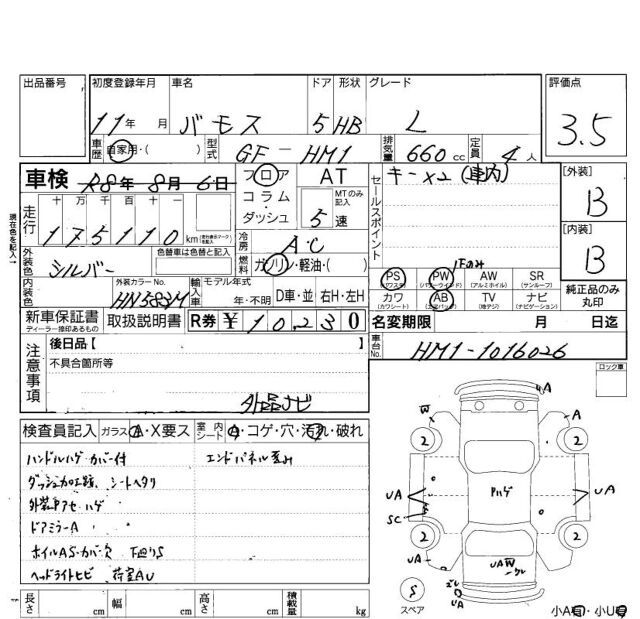 出品番号 初度登録年月 車名 ドア 形状 グレード 評価点
11年 月 バモス 5 HB L 3.5
車歴 自家用・( ) 型式 GF-HM1 排気量 660cc 定員 4人
車検 R8年 8月 6日 フロア コラム・ダッシュ AT MTのみ記入 5速
セールスポイント キー×2(車内)
[外装] B
走行 十万 千百十 175110km
現在色を記入→
[内装] B
外装色 シルバー 色替車は色替と記入
冷房 AC
燃料 ガソリン・軽油・( )
1Fのみ
PS (パワステ) PW (パワーウインド) AW (アルミホイル) SR (サンルーフ)
カワ (カワシート) AB (エアバック) TV (地デジ) ナビ (ナビゲーション)
純正品のみ丸印
内装色 外装カラーNo. 輸入車 モデル年式 年・不明 D車・並 右H・左H
新車保証書 ディーラー捺印あるもの 取扱説明書 R券 ¥10230
名変期限 月 日迄
注意事項 後日品【 】
車台No. HM1-1016026
不具合箇所等
ロック車
外品ナビ
検査員記入 ガラス A・X要ス 室内シート A・コゲ・穴・汚れ・破れ
ハンドルハゲ・カバー付 エンドパネル歪み
ダッシュ加工跡 シートヘタリ
ドアミラーA
ホイルAS・カバー欠 下廻りS
ヘッドライトヒビ 荷室AU
長さ cm 幅 cm 高さ cm 積載量 kg
UA
W A
2 2
Pハゲ
UA UA
SC
2 2
UA UW
S
スペア
UA
小A・小U